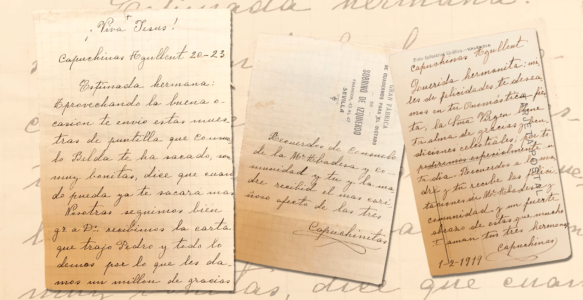 ¡Viva Jesus!
Capuchinas Agullent 20-23
Estimada hermana:
Aprovechando la buena o-
casion te envio estas mues
tras de puntilla que
lo Belda te ha sacado, son
muy bonitas, dice que cuan
do pueda ya te sacara mas
Nosotras seguimos bien
gs a Ds. recibimos la carta
que trajo Pedro y todo lo
demas por lo que les da
mos un millon de gracias
GRAN FABRICA
DE
SOBRINO DE IZQUIERDO
SEVILLA
Recuerdos de Consuelo
de la Me Abadesa y co
munidad y tu y la ma
dre recibid el mas cari
ñoso afecto de las tres
Capuchinitas
Capuchinas Agullent
Querida hermanita: mi
les de felicidades te desea
mos en tu Onomástica, pi
ta, la Sma Virgen llene
tu alma de gracias y ben
diciones celestiales. De ti
podremos especialmente
tu dia. Recuerdos a la ma
dre y tu recibe las felici
taciones de Me Abadesa y
comunidad y un fuerte
abrazo de estas que mucho
t aman tus tres hermanas
Capuchinas
1-2-1919
TARJETA POSTAL
Estimada hermana: